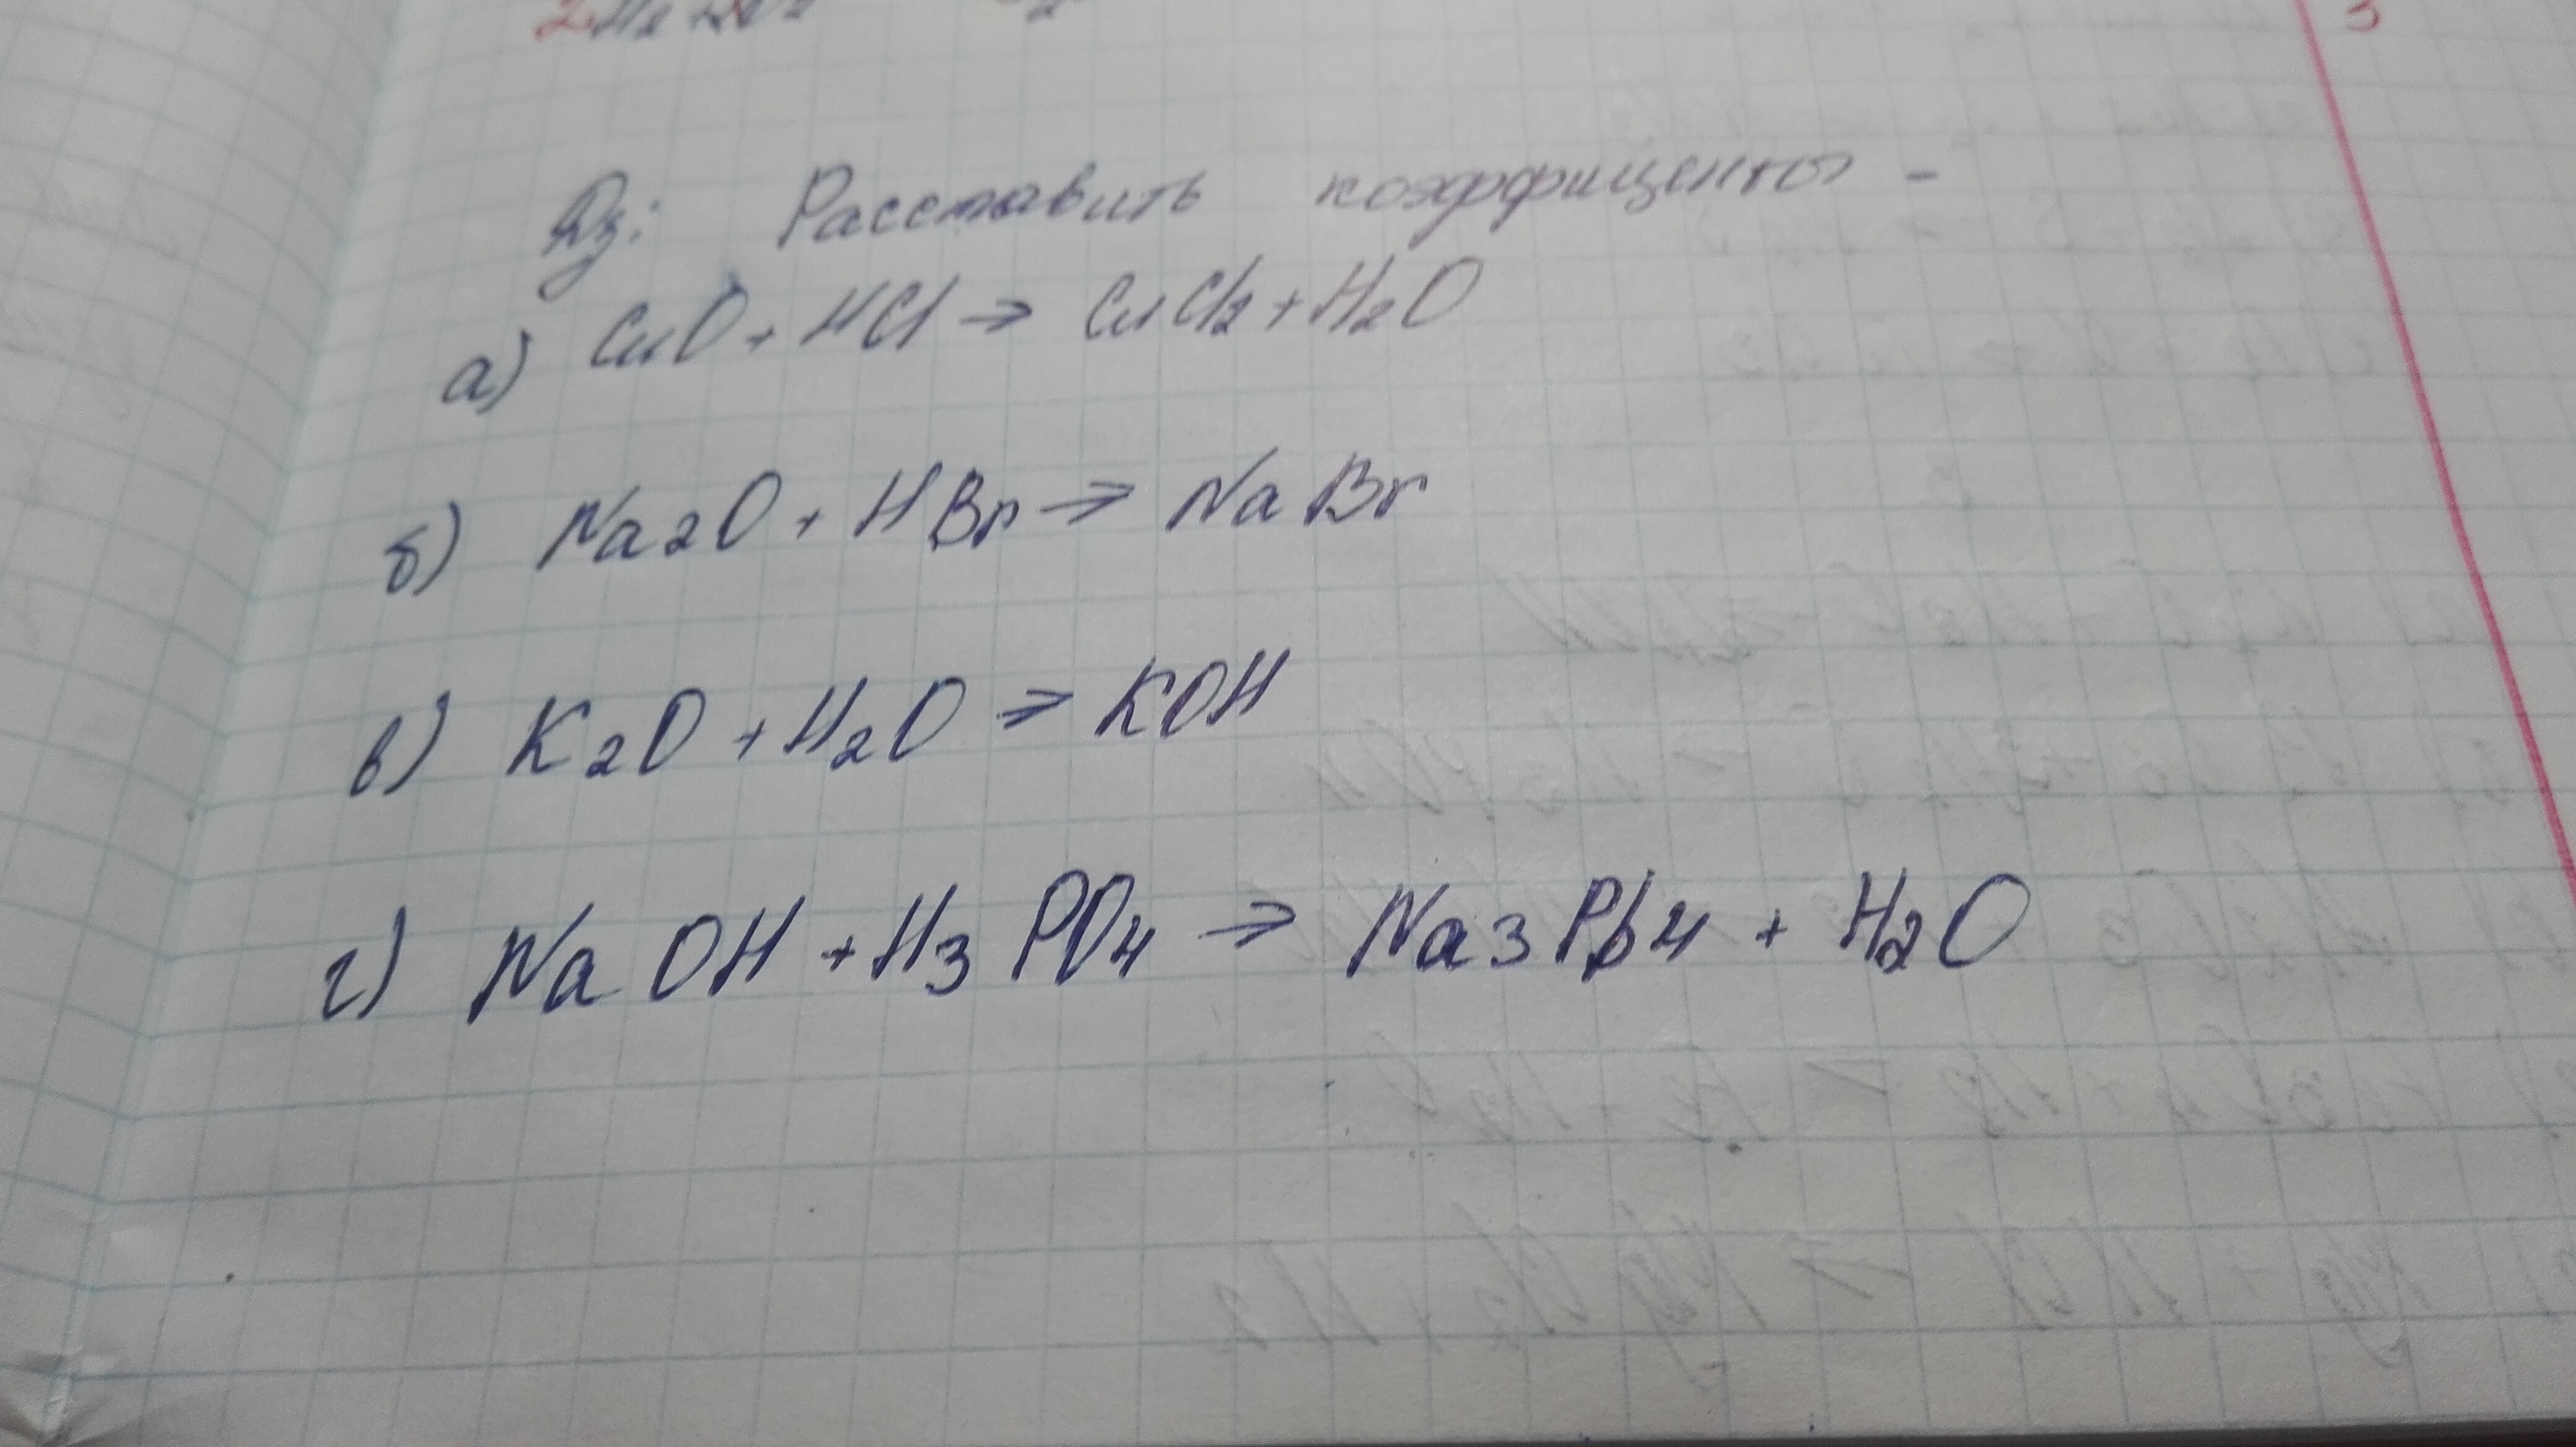 Дз: Расставить коэффиценты -
а) CuO + HCl → CuCl2 + H2O
б) Na2O + HBr → NaBr
в) K2O + H2O → KOH
г) NaOH + H3PO4 → Na3PO4 + H2O